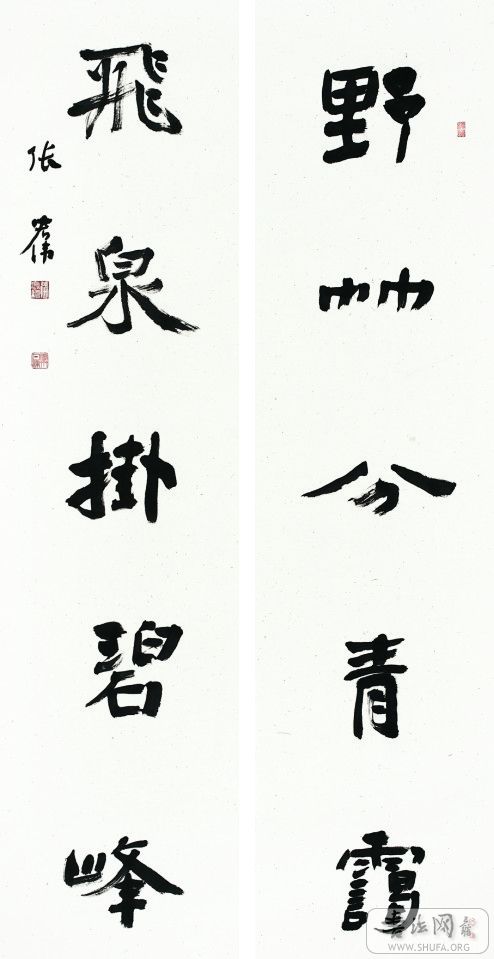 野竹分青靄
飛泉掛碧峰
張
書法网
WWW.SHUFA.ORG